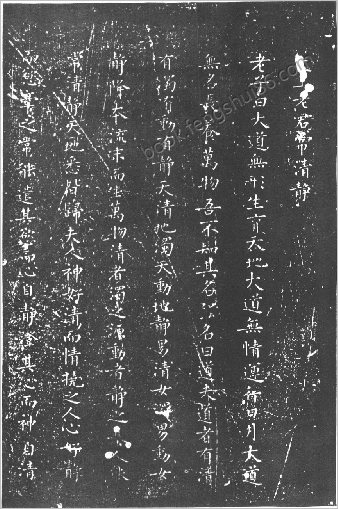 老君常清静
老子曰大道無形生育天地大道無情運行日月大道
無名長養萬物吾不知其名名曰道夫道者有清
有濁有動有静天清地濁天動地静男清女濁男動女
静降本流末而生萬物清者濁之源動者静之人
常清静天地悉皆歸夫人神好清而情撓之人心好静
而慾牽之常能遣其慾而心自静澄其心而神自清